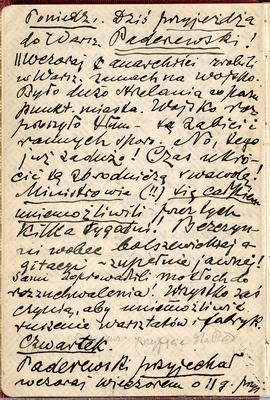 Poniedz. Dziś przyjeżdża
do Warsz. Paderewski!
Wczoraj anarchiści zrobili
w Warsz. zamach na wojsko.
Było dużo strzelania w paru
punkt. miasta. Wojsko roz-
proszyło tłum - są zabici i
rannych sporo. No, tego
już zadużo! Czas ukró-
cić tą zbrodniczą swawolę!
Ministrowie (!!) się całkiem
uniemożliwili przez tych
kilka tygodni. Bezczyn-
ni wobec bolszewickiej a-
gitacyi - zupełnie jawnej!
Sami doprowadzili motłoch do
rozzuchwalenia. Wszystko zaś
czynią, aby uniemożliwić
ruszenie warsztatów i fabryk.
Czwartek.
Paderewski przyjechał
wczoraj wieczorem o 11 g.